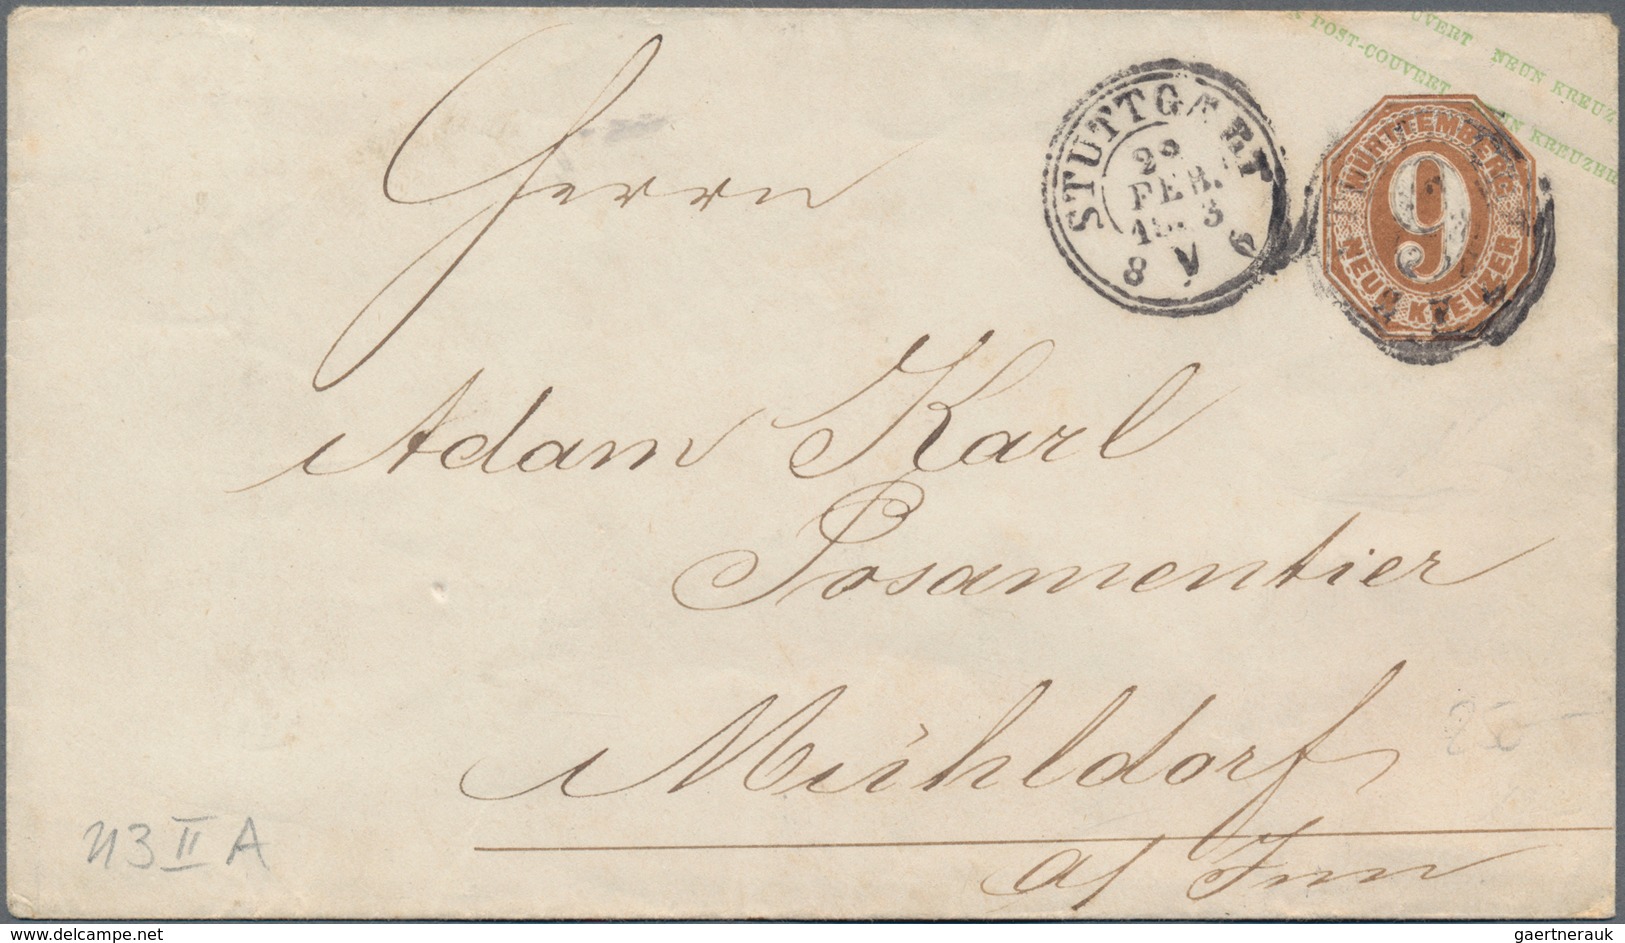 UVERT NEUN KREUZ
POST-COUVERT KREUZER
STUTTGART
FEB.
8 V 6
WÜRTTEMBERG
9
NEUN KREUZER
Herrn
Adam Karl
Posamentier
Mühldorf
a/ Inn
250-
U3 II A
www.delcampe.net
gaertnerauk